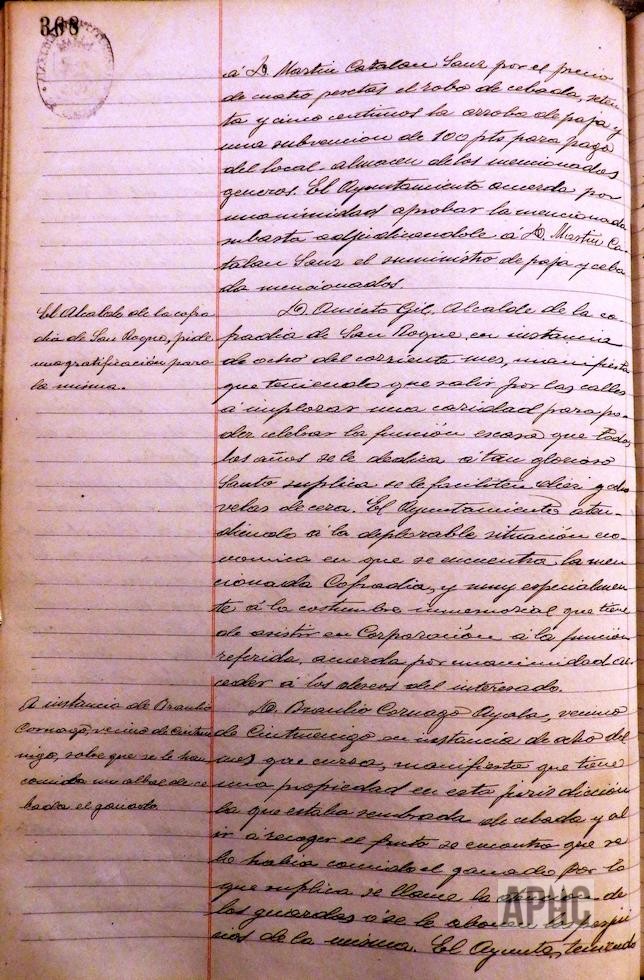 368
á D. Martin Catalan Sanz por el precio
de cuatro pesetas el robo de cebada, seten
ta y cinco centimos la arroba de paja y
una subvencion de 100 pts para pago
del local almacen de los mencionados
generos. El Ayuntamiento acuerda por
unanimidad aprobar la mencionada
subasta adjudicandole á D. Martin Ca-
talan Sanz el suministro de paja y ceba
da mencionados.
El Alcalde de la cofra
dia de San Roque, pide
una gratificación para
la misma.
D. Aniceto Gil, Alcalde de la co
fradia de San Roque en instancia
de ocho del corriente mes, manifiesta
que teniendo que salir por las calles
á implorar una caridad para po-
der celebrar la función escasa que todos
los años se le dedica á tan glorioso
Santo suplica se le faciliten diez y ocho
velas de cera. El Ayuntamiento aten-
diendo á la deplorable situación eco-
nomica en que se encuentra la men
cionada Cofradia, y muy especialmen
te á la costumbre inmemorial que tiene
de asistir en Corporación á la función
referida, acuerda por unanimidad ac
ceder á los deseos del interesado.
A instancia de Braulio
Cornago, vecino de Cintrue
nigo, sobre que se le han
comido un albal de ce
bada el ganado.
D. Braulio Cornago Ayala, vecino
de Cintruenigo en instancia de ocho del
mes que cursa, manifiesta que tiene
una propiedad en esta jurisdicción
la que estaba sembrada de cebada y al
ir á recoger el fruto se encontro que se
lo habia comido el ganado por lo
que suplica se llame la de
los guardas ó se le abonen los perjui
cios de la misma. El Ayunto, teniendo
APHC